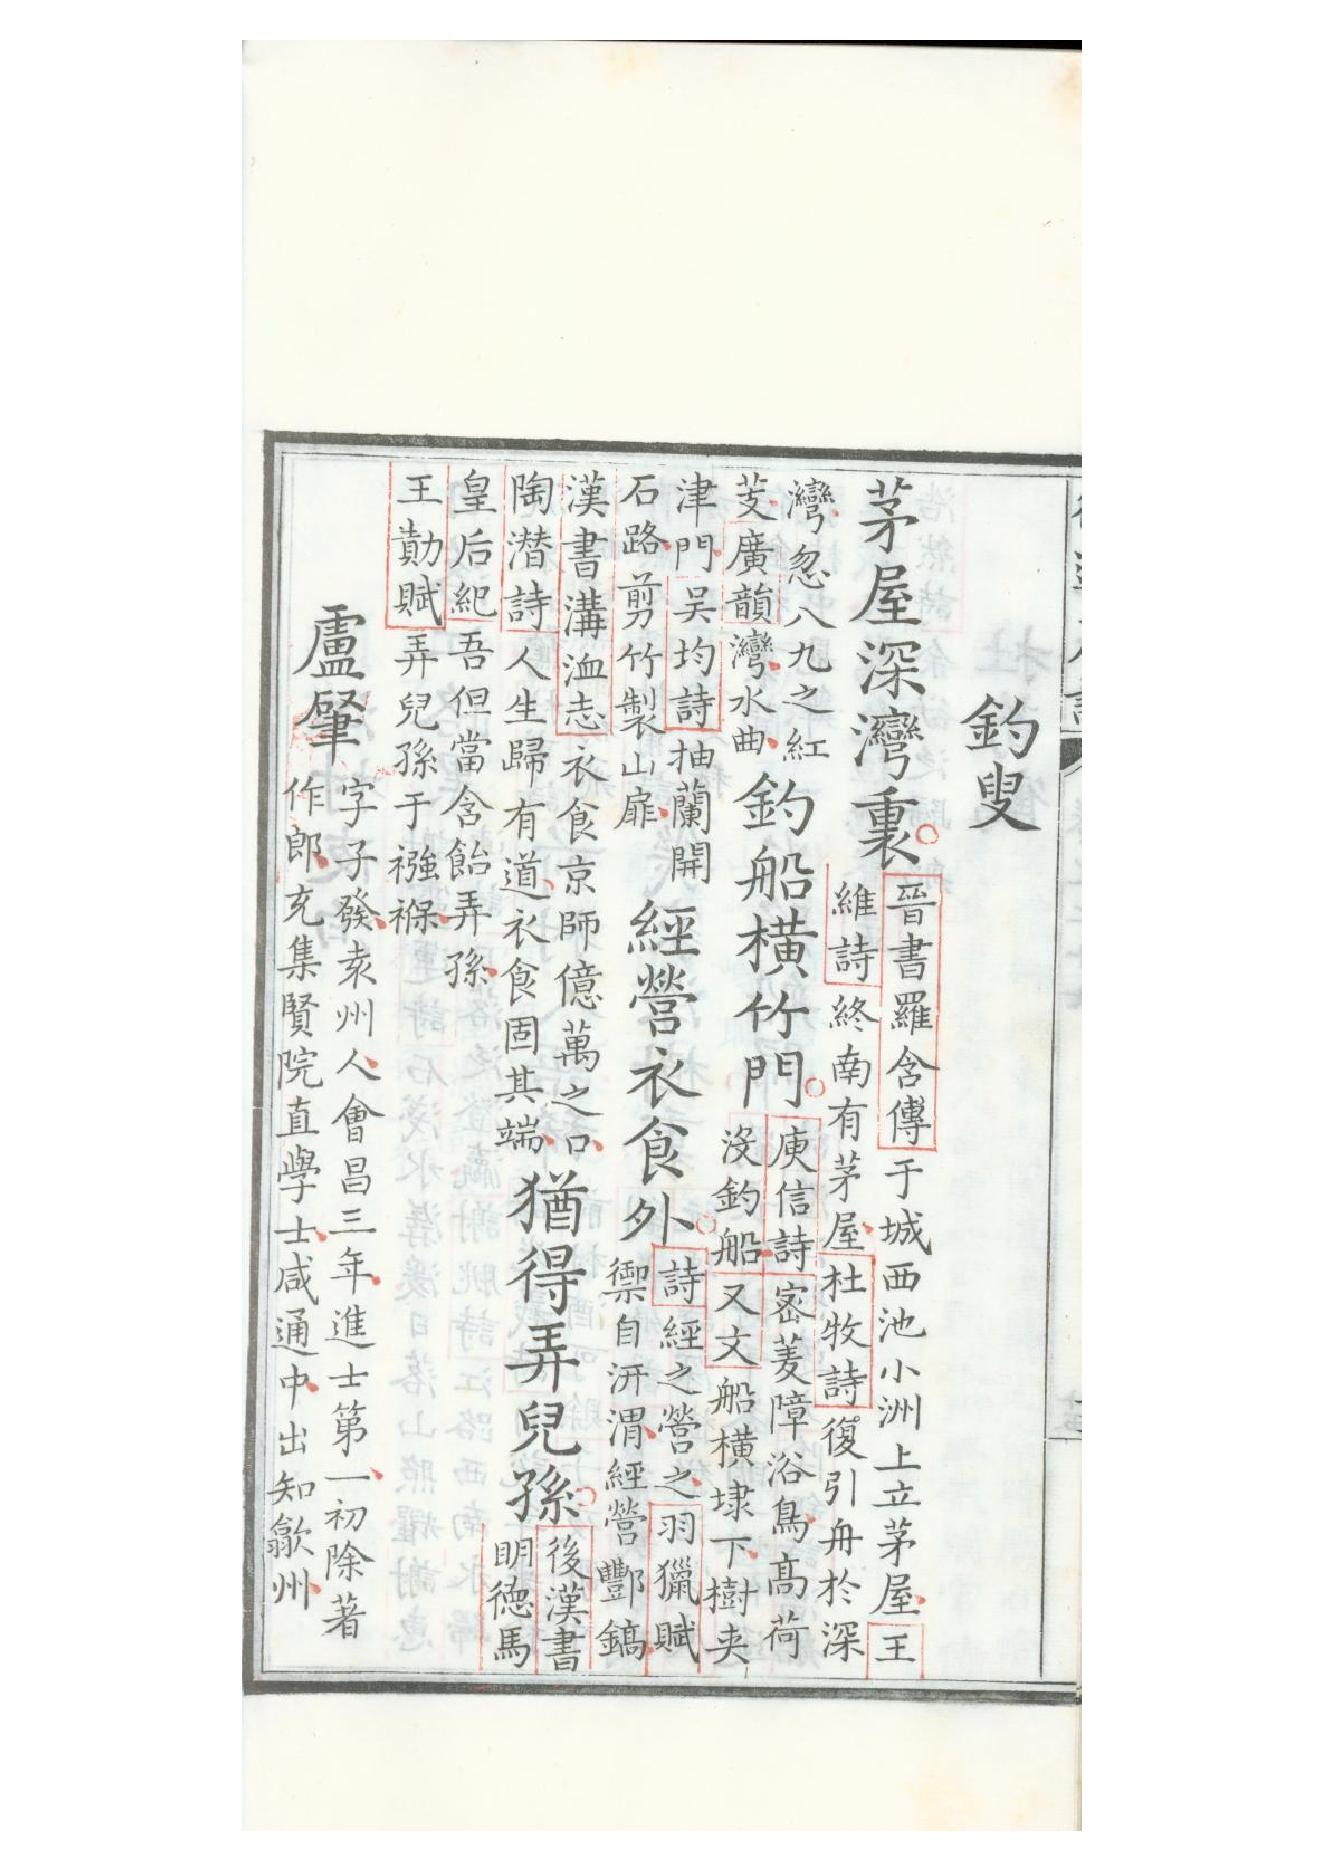 釣叟
茅屋深灣裏
晉書羅含傳于城西池小洲上立茅屋王
維詩終南有茅屋杜牧詩復引舟於深
灣忽八九之紅
芰廣韻灣水曲
釣船橫竹門
庾信詩密菱障浴鳥高荷
沒釣船又文船橫埭下樹夾
津門吳均詩抽蘭開
石路剪竹製山扉
經營衣食外
詩經之營之羽獵賦
禦自汧渭經營酆鎬
漢書溝洫志衣食京師億萬之口
陶潜詩人生歸有道衣食固其端
猶得弄兒孫
後漢書
明德馬
皇后紀吾但當含飴弄孫
王勣賦弄兒孫于襁褓
盧肇
字子發袁州人會昌三年進士第一初除著
作郎充集賢院直學士咸通中出知歙州